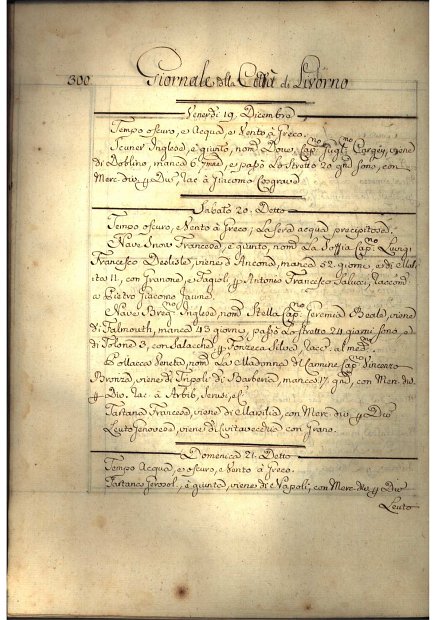 300 Giornale della Città di Livorno
Venerdì 19. Dicembre
Tempo oscuro, e Acqua, e Vento à Greco.
Scuner Inglese, è giunto, nom.º Dove, Cap.no Cargey, viene
di Doblino, manca 6 passò Lo Stretto 20 gni sono, con
Merc. div. p Div. Rac. à Giacomo Cosgrave
Sabato 20. Detto
Tempo oscuro, e Vento à Greco; La Sera acqua precipitosa.
Nave Snow Francese, è giunto, nom. La Soffia Cap.no Luigi
Francesco Deslisle, viene d'Ancona, manca 52. giorni, e di
11, con Granone, e Fagioli p Antonio Francesco Salucci, Raccom.
a Pietro Giacomo
Nave Inglese nom. Stella Cap.no Jeremia Beale, viene
di Falmouth, manca 43 giorni, passò Lo Stretto 24 giorni sono, e
di Tolone 3, con Salacche p Fonzeca Silva, Racc. al med.mo
Pollacca Veneta, nom. La Madonna del Carmine Cap.no Vincenzo
Bronza, viene di Tripoli di Barberia, manca 17. gni, con Merc. div.
p Div. Rac. à Arbib,
Tartana Francese, viene di Marsilia, con Merc. div. p Div.
Leuto Genovese, viene di Civitavecchia con Grano.
Domenica 21. Detto
Tempo Acqua, e oscuro, e Vento à Greco.
Tartana Gerosol., è giunta, viene di Napoli, con Merc. div. p Div.
Leuto